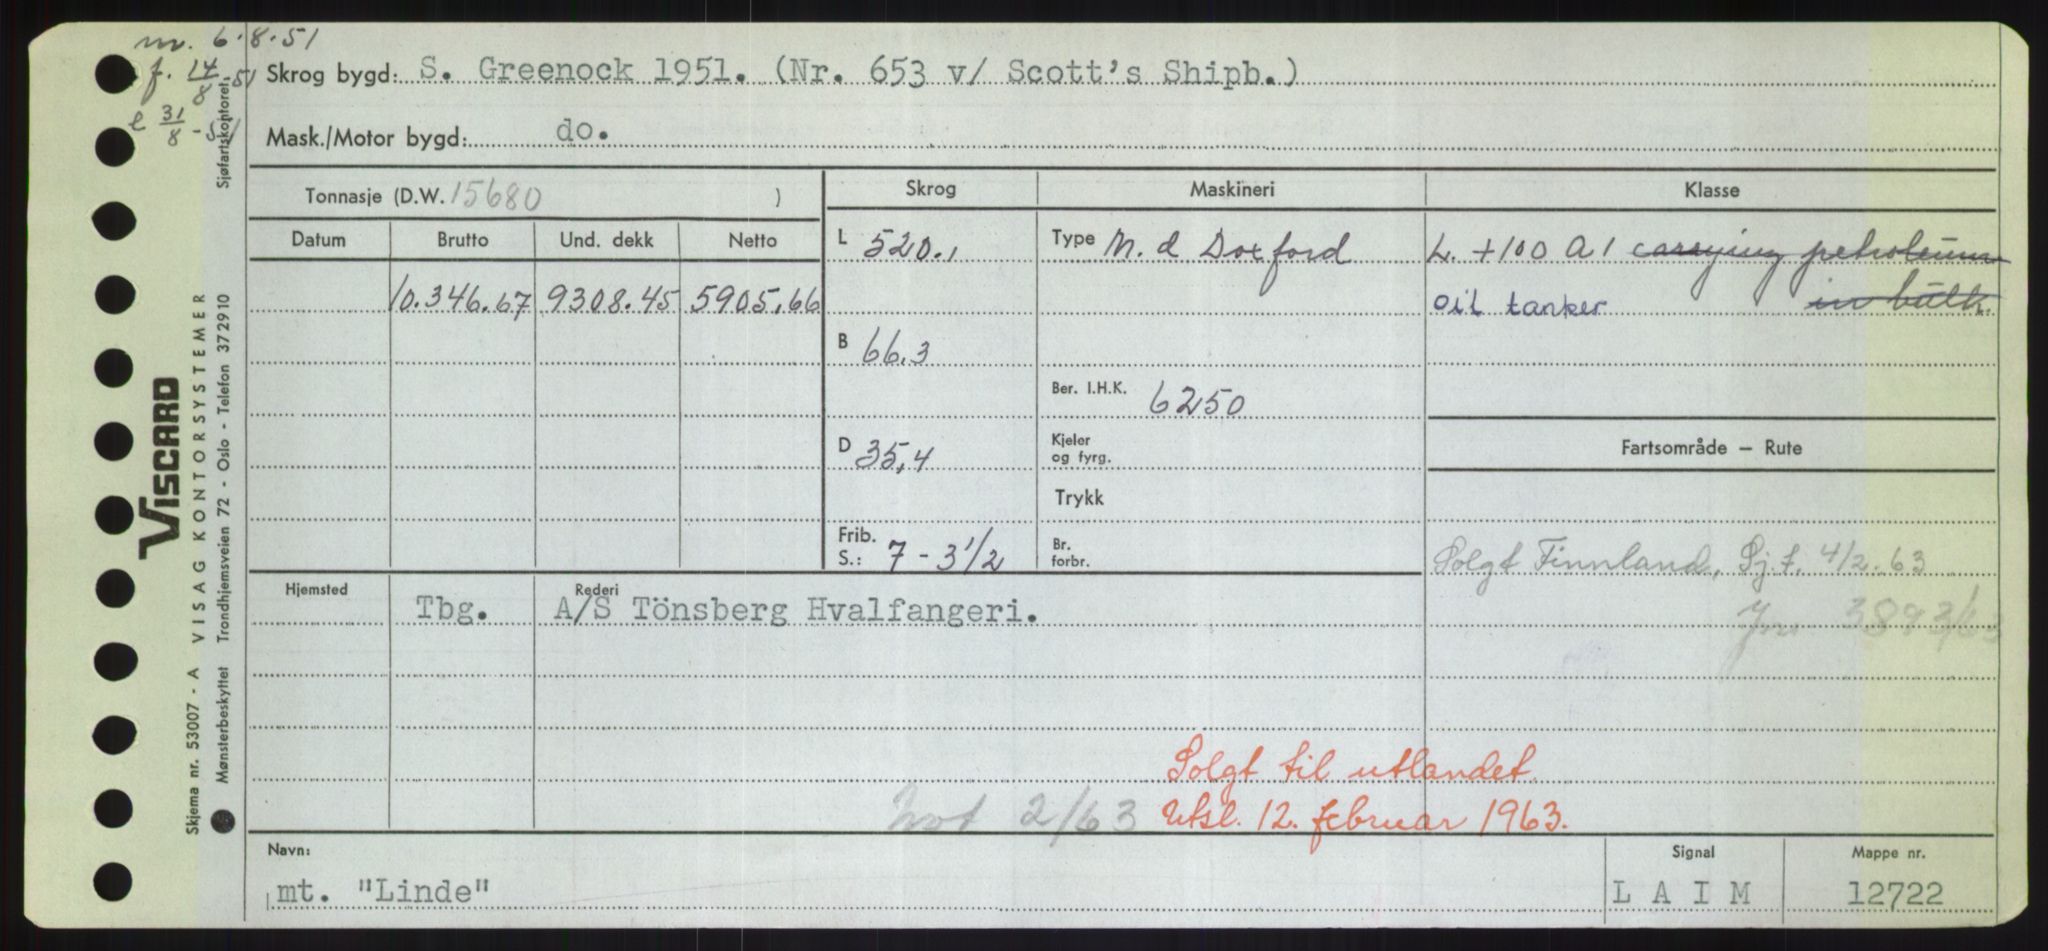 m. 6.8.51
f. 14/8-51
e 31/8-51
Skrog bygd: S. Greenock 1951. (Nr. 653 v/ Scott's Shipb.)
Mask./Motor bygd: do.
Tonnasje (D.W. 15680 )
Skrog
Maskineri
Klasse
Datum Brutto Und. dekk Netto
L 520.1
Type M. d Doxford
L. +100 A 1 carrying petroleum
10.346.67 9308.45 5905,66
oil tanker in bulk.
B 66.3
Ber. I.H.K. 6250
D 35,4
Kjeler
og fyrg.
Fartsområde — Rute
Trykk
Frib.
S.: 7 - 3 1/2
Br.
forbr.
Solgt Finnland, Sj.f. 4/2-63
Jnr 3893/63
Hjemsted Rederi
Tbg. A/S Tönsberg Hvalfangeri.
Solgt til utlandet
2/63 Utsl. 12. februar 1963.
Navn:
mt. "Linde"
Signal
L A I M
Mappe nr.
12722
VISCARD
VISAG KONTORSYSTEMER
Skjema nr. 53007 - A
Mønsterbeskyttet Trondhjemsveien 72 - Oslo - Telefon 372910
Sjøfartskontoret